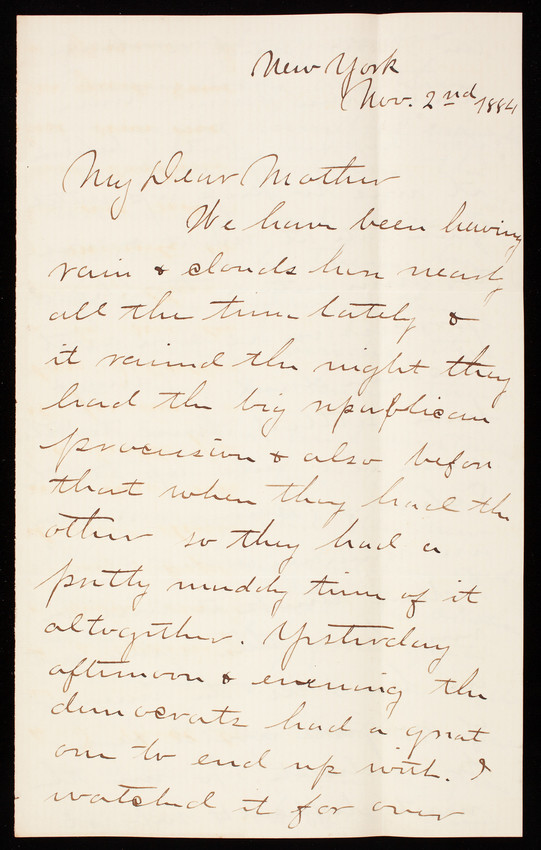 New York
Nov. 2nd 1884
My Dear Mother
We have been having
rain & clouds here nearly
all the time lately &
it rained the night they
had the big republican
procession & also before
that when they had the
other so they had a
pretty muddy time of it
altogether. Yesterday
afternoon & evening the
democrats had a great
one to end up with. I
watched it for over